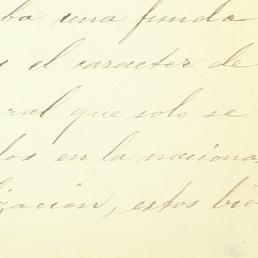 ba una funda
s el caracter de
ral que solo se
los en la naciona
zación, estos bie